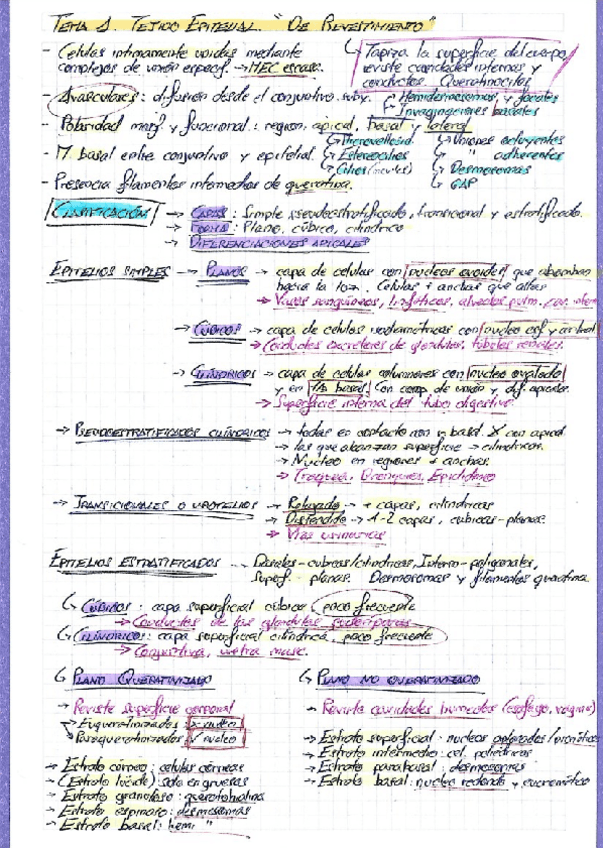 TEMA 1. TEJIDO EPITELIAL. "DE REVESTIMIENTO"
- Celulas intimamente unidas mediante
complejos de unión especif. → MEC escasa.
↳ Tapiza la superficie del cuerpo,
reviste cavidades internas y
conductos. Queratinocitos
- Avasculares: difusión desde el conjuntivo suby.
→ Hemidesmosomas, y focales
→ Invaginaciones basales
- Polaridad morf. y funcional: region apical, basal y lateral
- M. basal entre conjuntivo y epitelial.
↳ Microvellosid.
↳ Estereocilios
↳ Cilios (moviles)
↳ Uniones ocluyentes
↳ " adherentes
↳ Desmosomas
↳ GAP
- Presencia filamentos intermedios de queratina.
CLASIFICACIÓN → CAPAS: Simple pseudoestratificado, transicional y estratificado.
→ FORMA: Plano, cúbico, cilindrico
→ DIFERENCIACIONES APICALES
EPITELIOS SIMPLES → PLANOS → capa de celulas con nucleos ovoides que abomban
hacia la luz. Celulas + anchas que altas
→ Vasos sanguineos, linfaticos, alveolos pulm.
→ CÚBICOS → capa de celulas isodiametricas con nucleo esf y central
→ Conductos excretores de glandulas, tubulos renales.
→ CILÍNDRICOS → capa de celulas columnares con nucleo ovalado
y en 1/3 basal. Con comp de unión y dif. apicales.
→ Superficie interna del tubo digestivo.
→ PSEUDOESTRATIFICADOS CILÍNDRICOS → todas en contacto con m basal. X con apical
→ las que alcanzan superficie → cilindricas.
→ Nucleo en regiones + anchas.
→ Traquea, Bronquios, Epididimo
→ TRANSICIONALES O UROTELIOS → Relajado → + capas, cilindricas
→ Distendido → 1-2 capas, cubicas-planas.
→ Vias urinarias
EPITELIOS ESTRATIFICADOS → Basales-cubicas/cilindricas, Interm-poligonales,
Superf. - planas. Desmosomas y filamentos queratina
↳ CÚBICOS: capa superficial cúbica (poco frecuente
→ Conductos de las glandulas sudoriparas
↳ CILINDRICOS: capa superficial cilindrica, poco frecuente
→ Conjuntiva, uretra masc.
↳ PLANO QUERATINIZADO
→ Reviste superficie corporal
→ Euqueratinizados: X nucleo
→ Paraqueratinizados: ✓ nucleo
→ Estrato córneo: celulas córneas
→ (Estrato lucido) solo en gruesas
→ Estrato granuloso: queratohialina
→ Estrato espinoso: desmosomas
→ Estrato basal: hemi "
↳ PLANO NO QUERATINIZADO
→ Reviste cavidades humedas (esofago, vagina)
→ Estrato superficial: nucleos aplanados/picnoticos
→ Estrato intermedio: cel. poliedricas
→ Estrato parabasal: desmosomas
→ Estrato basal: nucleo redondo y eucromático